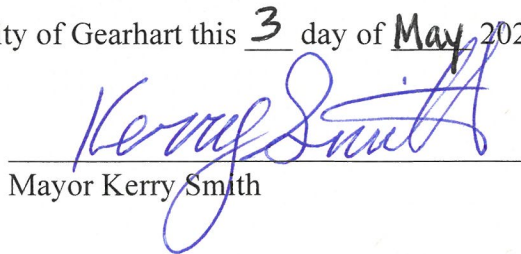 ity of Gearhart this 3 day of May 202
Kerry Smith
Mayor Kerry Smith